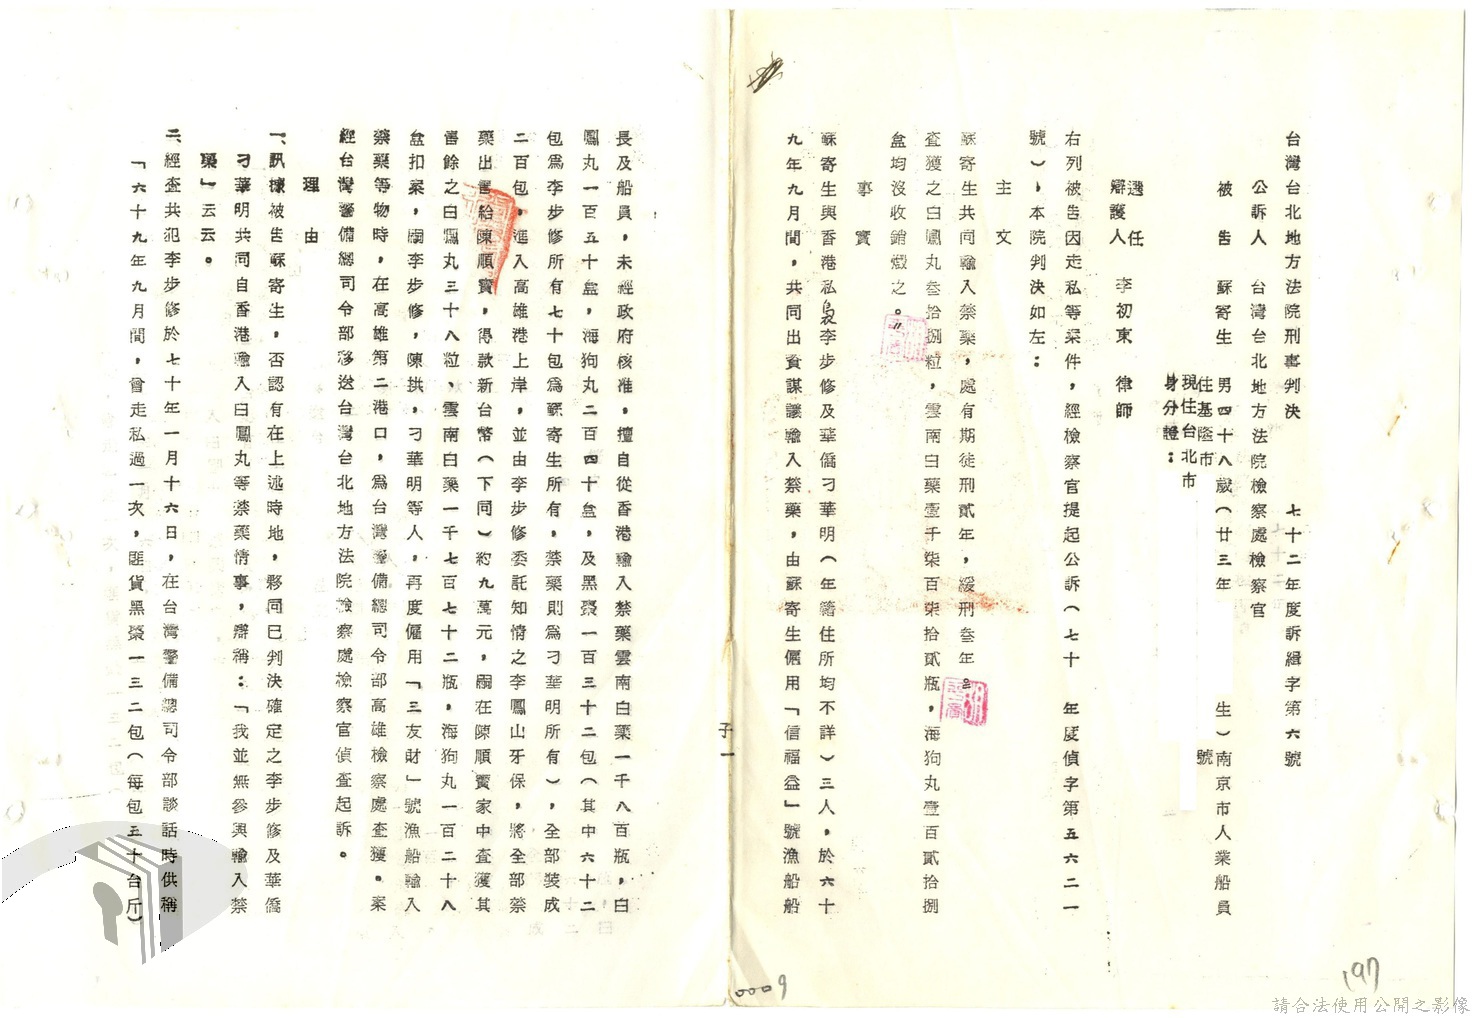 台灣台北地方法院刑事判決　七十二年度訴緝字第六號
公訴人　台灣台北地方法院檢察處檢察官
被告　蘇寄生　男四十八歲（廿三年　生）南京市人業船員
住基隆市　號
現住台北市
身分證：
選任
辯護人　李初東　律師
右列被告因走私等案件，經檢察官提起公訴（七十　年度偵字第五六二一
號），本院判決如左：
主文
蘇寄生共同輸入禁藥，處有期徒刑貳年，緩刑叁年。
查獲之白鳳丸叁拾捌粒，雲南白藥壹千柒百柒拾貳瓶，海狗丸壹百貳拾捌
盒均沒收銷燬之。
事實
蘇寄生與香港私梟李步修及華僑刁華明（年籍住所均不詳）三人，於六十
九年九月間，共同出資謀議輸入禁藥，由蘇寄生僱用「信福益」號漁船船
子一
長及船員，未經政府核准，擅自從香港輸入禁藥雲南白藥一千八百瓶，白
鳳丸一百五十盒，海狗丸二百四十盒，及黑棗一百三十二包（其中六十二
包為李步修所有七十包為蘇寄生所有，禁藥則為刁華明所有），全部裝成
二百包，運入高雄港上岸，並由李步修委託知情之李鳳山牙保，將全部禁
藥出售給陳順寶，得款新台幣（下同）約九萬元，嗣在陳順寶家中查獲其
售餘之白鳳丸三十八粒、雲南白藥一千七百七十二瓶，海狗丸一百二十八
盒扣案，嗣李步修，陳拱，刁華明等人，再度僱用「三友財」號漁船輸入
禁藥等物時，在高雄第二港口，為台灣警備總司令部高雄檢察處查獲。案
經台灣警備總司令部移送台灣台北地方法院檢察處檢察官偵查起訴。
理由
一、訊據被告蘇寄生，否認有在上述時地，夥同已判決確定之李步修及華僑
刁華明共同自香港輸入白鳳丸等禁藥情事，辯稱：「我並無參與輸入禁
藥」云云。
二、經查共犯李步修於七十年一月十六日，在台灣警備總司令部談話時供稱
「六十九年九月間，曾走私過一次，匪貨黑棗一三二包（每包五十台斤）
0009
197
請合法使用公開之影像